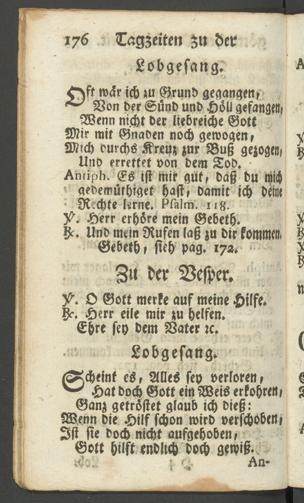 176 Tagzeiten zu der
Lobgesang.
Oft wär ich zu Grund gegangen,
Von der Sünd und Höll gefangen,
Wenn nicht der liebreiche Gott
Mir mit Gnaden noch gewogen,
Mich durchs Kreuz zur Buß gezogen,
Und errettet von dem Tod.
Antiph. Es ist mir gut, daß du mich
gedemüthiget hast, damit ich deine
Rechte lerne. Psalm. 118.
℣. Herr erhöre mein Gebeth.
℟. Und mein Rufen laß zu dir kommen.
Gebeth, sieh pag. 172.
Zu der Vesper.
℣. O Gott merke auf meine Hilfe.
℟. Herr eile mir zu helfen.
Ehre sey dem Vater ꝛc.
Lobgesang.
Scheint es, Alles sey verloren,
Hat doch Gott ein Weis erkohren,
Ganz getröstet glaub ich dieß:
Wenn die Hilf schon wird verschoben,
Ist sie doch nicht aufgehoben,
Gott hilft endlich doch gewiß.
An-